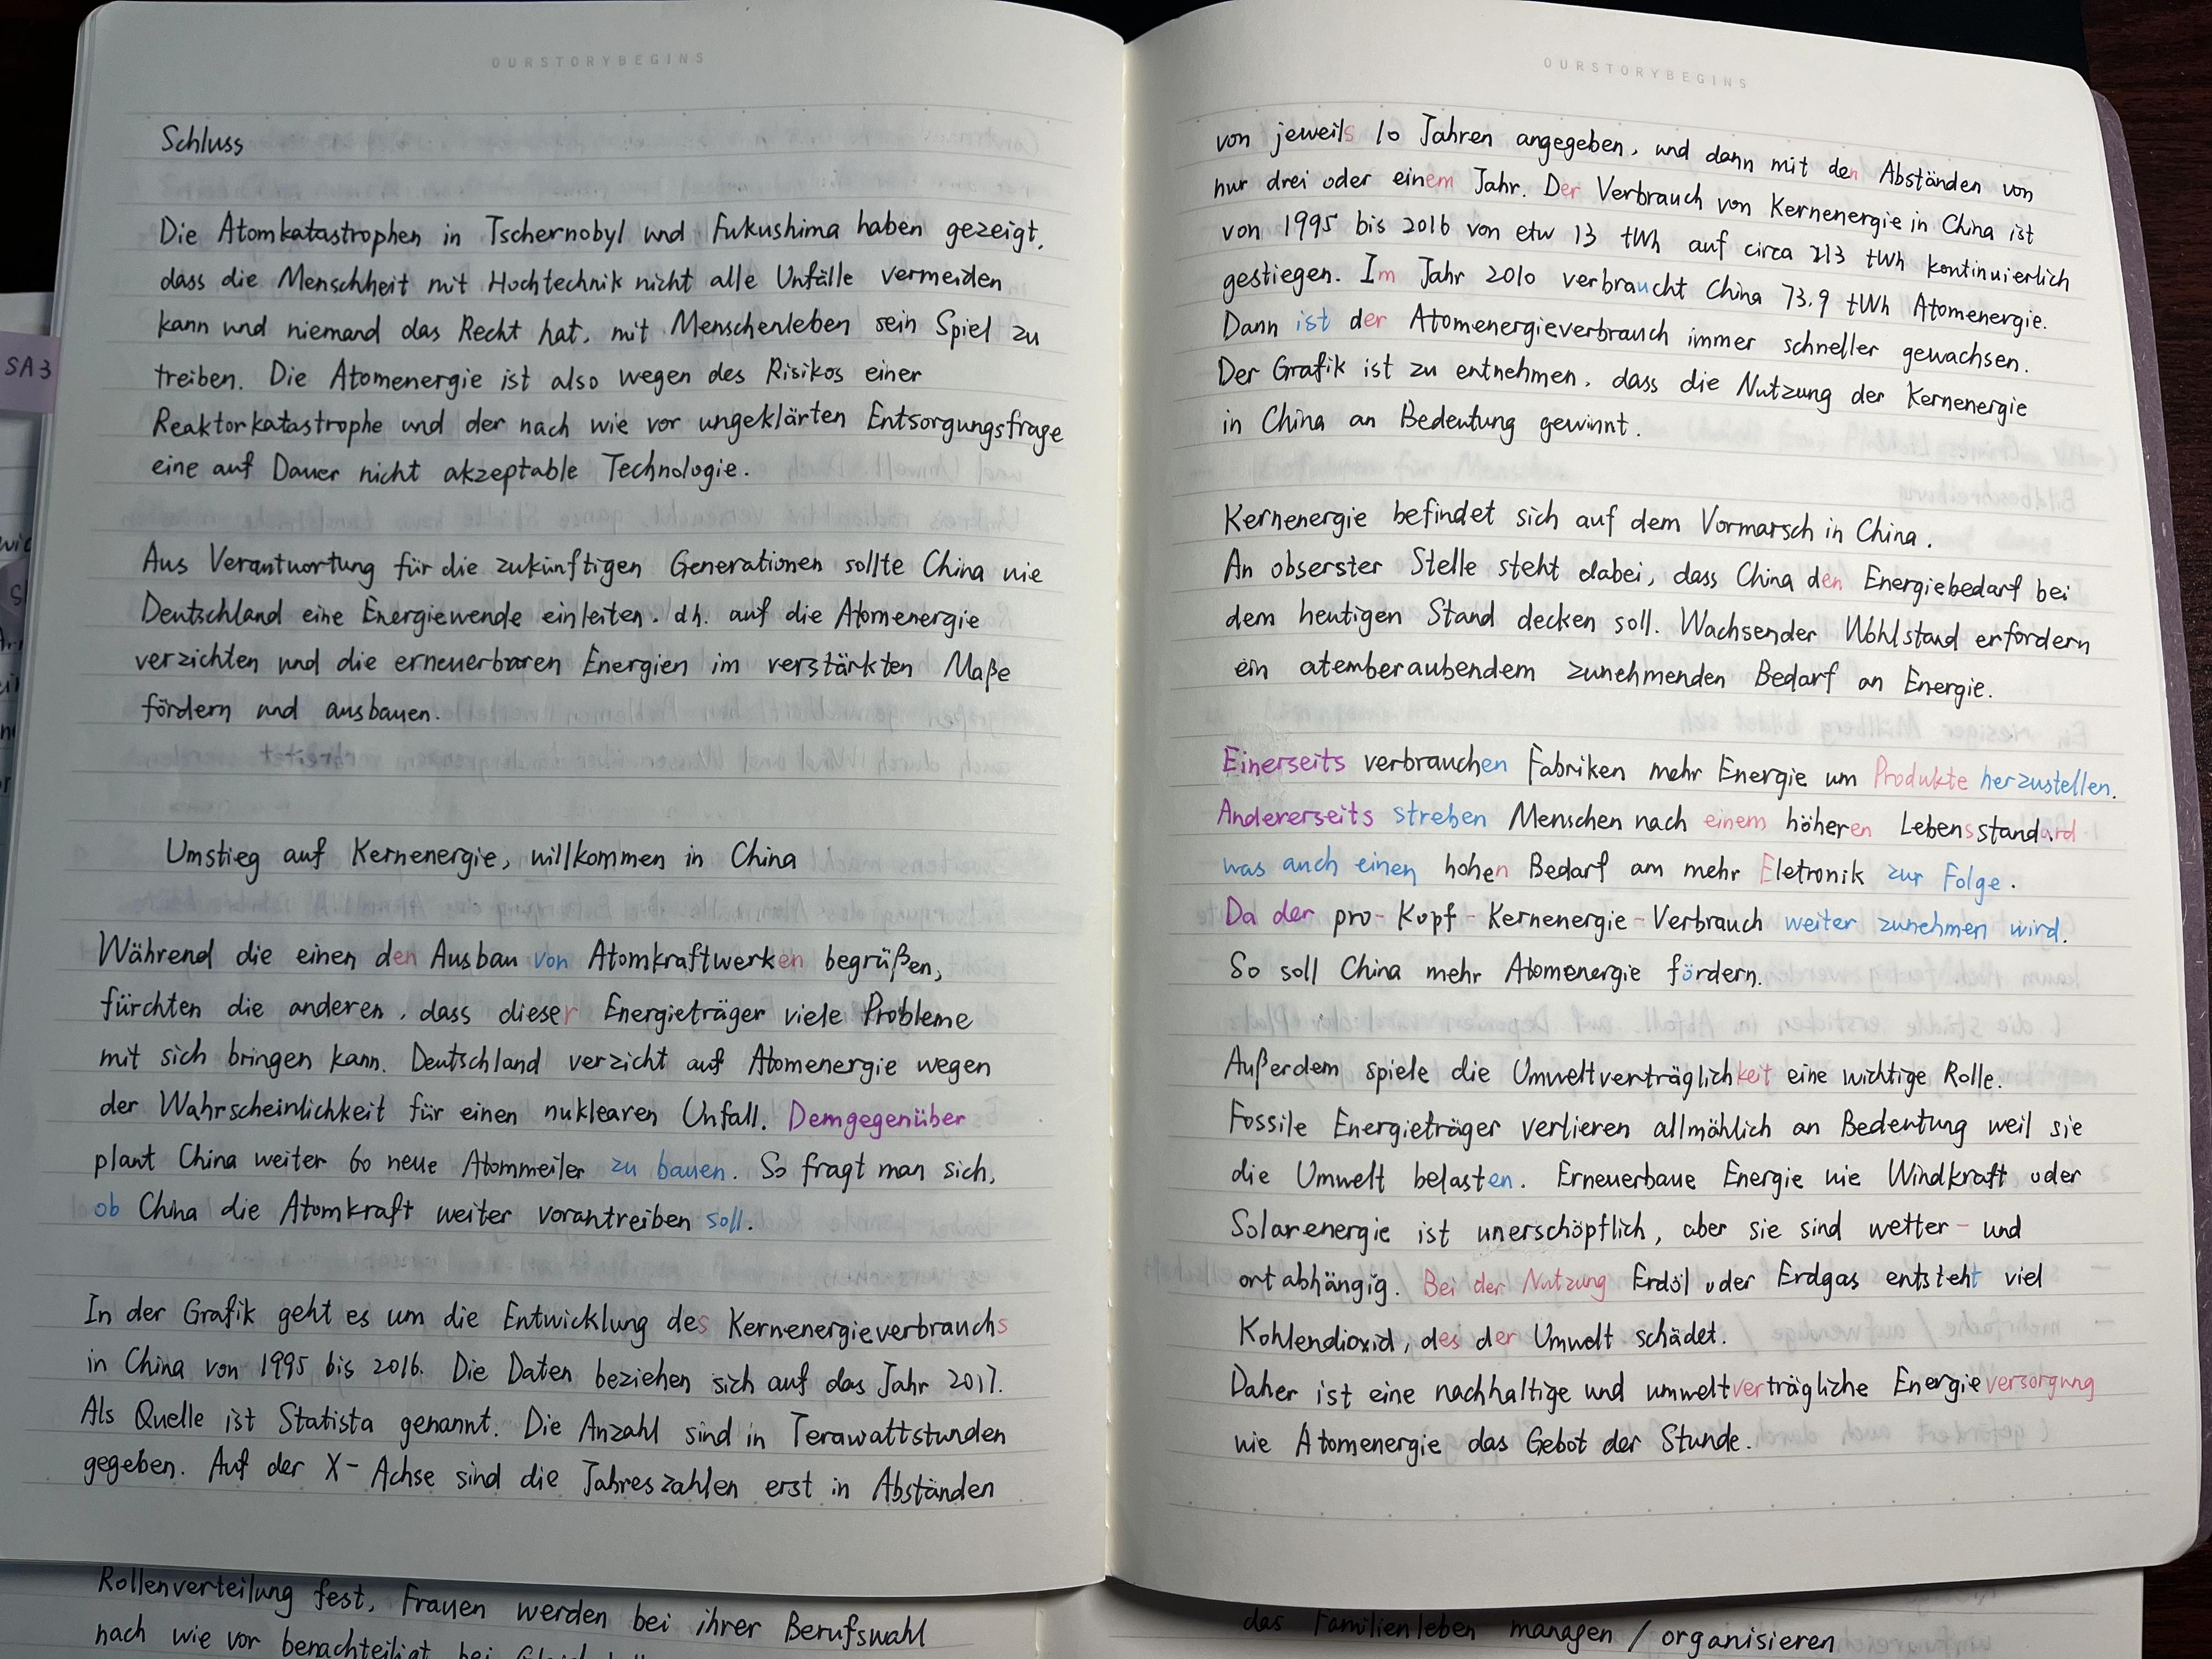 OURSTORYBEGINS
Schluss
Die Atomkatastrophen in Tschernobyl und Fukushima haben gezeigt,
dass die Menschheit mit Hochtechnik nicht alle Unfälle vermeiden
kann und niemand das Recht hat, mit Menschenleben sein Spiel zu
treiben. Die Atomenergie ist also wegen des Risikos einer
Reaktorkatastrophe und der nach wie vor ungeklärten Entsorgungsfrage
eine auf Dauer nicht akzeptable Technologie.
Aus Verantwortung für die zukünftigen Generationen sollte China wie
Deutschland eine Energiewende einleiten. d.h. auf die Atomenergie
verzichten und die erneuerbaren Energien im verstärkten Maße
fördern und ausbauen.
Umstieg auf Kernenergie, willkommen in China
Während die einen den Ausbau von Atomkraftwerken begrüßen,
fürchten die anderen, dass dieser Energieträger viele Probleme
mit sich bringen kann. Deutschland verzicht auf Atomenergie wegen
der Wahrscheinlichkeit für einen nuklearen Unfall. Demgegenüber
plant China weiter 60 neue Atommeiler zu bauen. So fragt man sich,
ob China die Atomkraft weiter vorantreiben soll.
In der Grafik geht es um die Entwicklung des Kernenergieverbrauchs
in China von 1995 bis 2016. Die Daten beziehen sich auf das Jahr 2017.
Als Quelle ist Statista genannt. Die Anzahl sind in Terawattstunden
gegeben. Auf der X-Achse sind die Jahreszahlen erst in Abständen
Rollenverteilung fest, Frauen werden bei ihrer Berufswahl
nach wie vor benachteiligt bei
SA3
OURSTORYBEGINS
von jeweils 10 Jahren angegeben, und dann mit den Abständen von
nur drei oder einem Jahr. Der Verbrauch von Kernenergie in China ist
von 1995 bis 2016 von etw 13 tWh auf circa 213 tWh kontinuierlich
gestiegen. Im Jahr 2010 verbraucht China 73.9 tWh Atomenergie.
Dann ist der Atomenergieverbrauch immer schneller gewachsen.
Der Grafik ist zu entnehmen, dass die Nutzung der Kernenergie
in China an Bedeutung gewinnt.
Kernenergie befindet sich auf dem Vormarsch in China.
An obserster Stelle steht dabei, dass China den Energiebedarf bei
dem heutigen Stand decken soll. Wachsender Wohlstand erfordern
ein atemberaubendem zunehmenden Bedarf an Energie.
Einerseits verbrauchen Fabriken mehr Energie um Produkte herzustellen.
Andererseits streben Menschen nach einem höheren Lebensstandard
was auch einen hohen Bedarf am mehr Eletronik zur Folge.
Da der pro-Kopf-Kernenergie-Verbrauch weiter zunehmen wird.
So soll China mehr Atomenergie fördern.
Außerdem spiele die Umweltverträglichkeit eine wichtige Rolle.
Fossile Energieträger verlieren allmählich an Bedeutung weil sie
die Umwelt belasten. Erneuerbaue Energie wie Windkraft oder
Solarenergie ist unerschöpflich, aber sie sind wetter- und
ortabhängig. Bei der Nutzung Erdöl oder Erdgas entsteht viel
Kohlendioxid, des der Umwelt schädet.
Daher ist eine nachhaltige und umweltverträgliche Energieversorgung
wie Atomenergie das Gebot der Stunde.
das Familienleben managen / organisieren